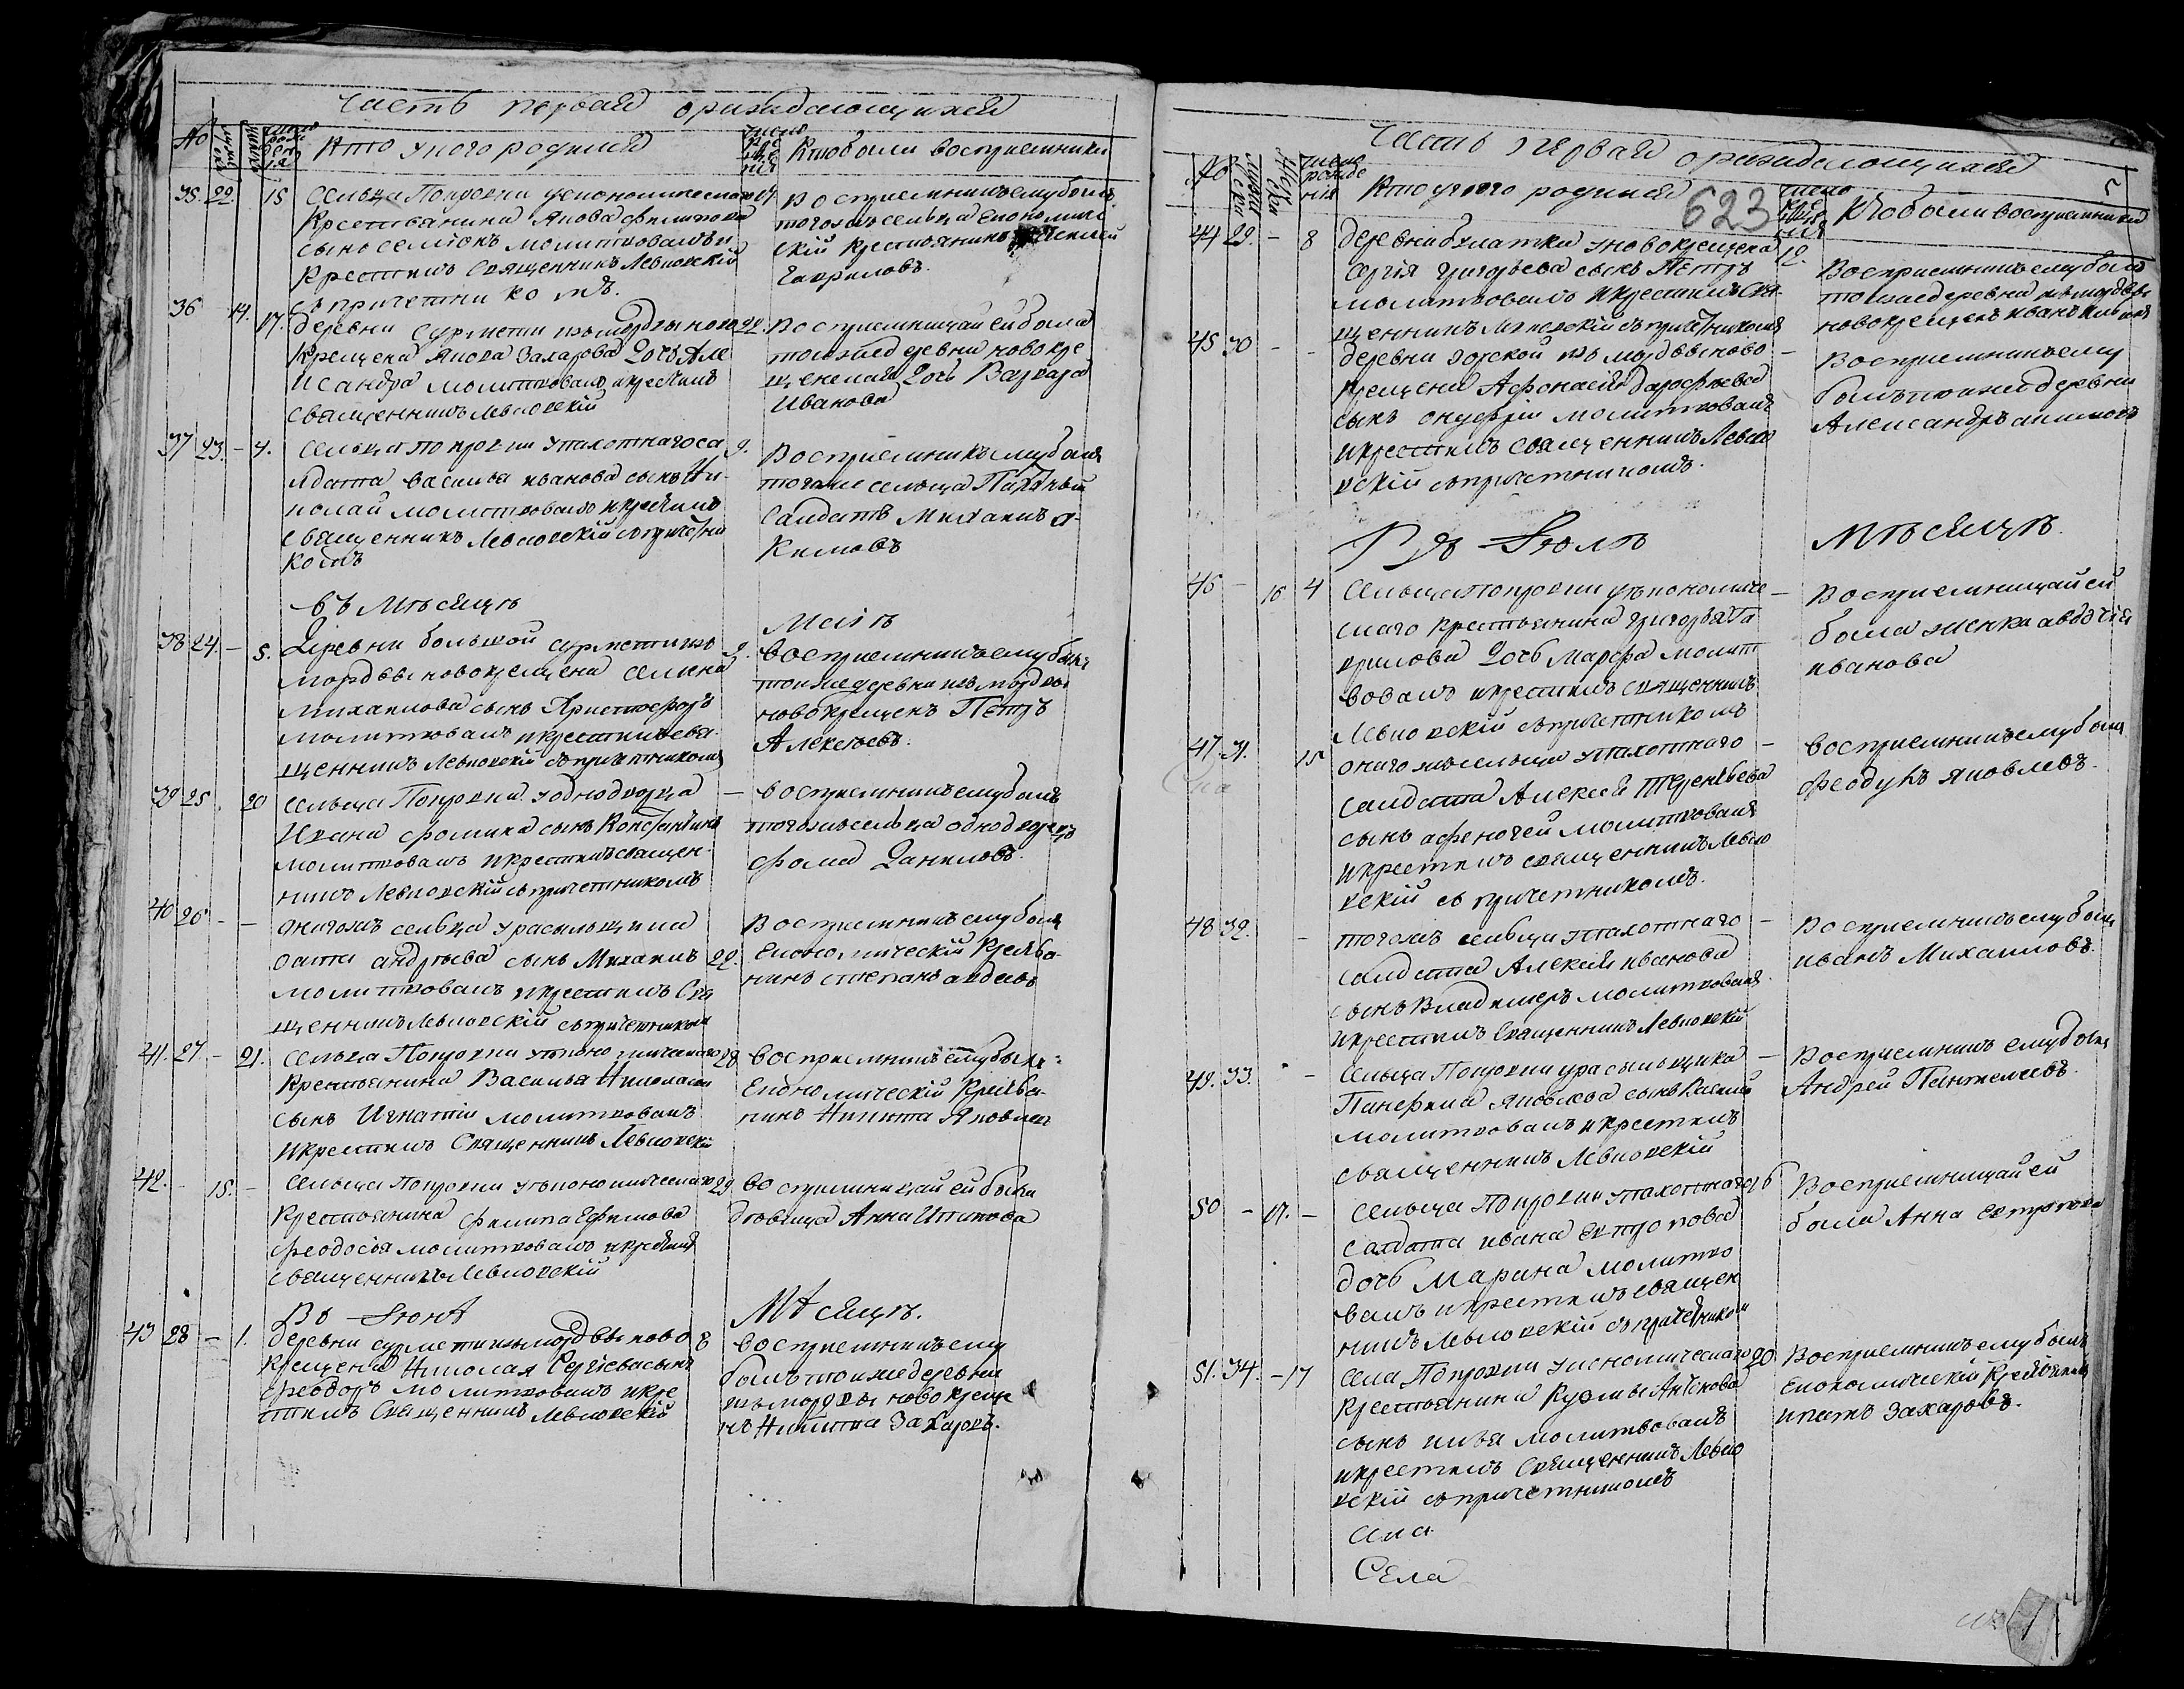 Часть первая ораждающихся
No
число рождения
Кто у кого родился
число крещения
Кто были восприемники
35. 22. 15
Сельца Покровки уекономическаго 17
Крестьянина Якова Филипова
сынъ Семіонъ молитвовалъ и
Крестилъ Священникъ Левковскій
съ причетникомъ.
Восприемникъ ему былъ
тогожъ сельца Економиче
скій Крестьянинъ Алексей
Гавриловъ.
36 14. 17.
деревни Сурметки изъ мордвы ново 22.
крещена Якова Захарова дочь Але
ксандра молитвовалъ и крестилъ
священникъ Левковскій
Восприемницай ей была
тоижедеревни новокре
щенская дочь Варвара
Иванова
37 23. - 4.
сельца Покровки упахотнаго са 9.
лдата Василья Иванова сынъ Ни
колай молитвовалъ и крестилъ
священникъ Левковскій съ причетни
комъ
Восприемникъ ему былъ
тогоже сельца Пахатный
Салдатъ Михаилъ А
кимовъ
Въ Месяце
Маіе
38 24. - 5.
Деревни большой Сурметки изъ 9.
мордвы новокрещена Семена
Михаилова сынъ Христофоръ
молитвовалъ и крестилъ свя
щенникъ Левковскій съ причетникомъ
Восприемникъ ему былъ
тоижедеревни изъ мордвы
новокрещенъ Петръ
Алексеевъ.
39 25. 20
сельца Покровки уоднодворца -
Ивана Фомина сынъ Константинъ
молитвовалъ и крестилъ священ
никъ Левковскій съ причетникомъ
Восприемникъ ему былъ
тогожъ сельца однодворецъ
Фома Даниловъ.
40 26 - -
оногожъ сельца у расыльщика
андреева сынъ Михаилъ 22.
молитвовалъ и крестилъ Свя
щенникъ Левковскій съ причетникомъ
Восприемникъ ему былъ
Економическій Крестья
нинъ Степанъ Авдеевъ
41. 27. - 21.
Сельца Покровки уекономическаго 28
Крестьянина Василья Николаева
сынъ Игнатій молитвовалъ
и крестилъ Священникъ Левковскій
Восприемникъ ему былъ
Економическій Крестья
нинъ Никита Яковлевъ
42. - 15. -
Сельца Покровки уекономическаго 29
Крестьянина Филипа Ефимова
Феодосья молитвовалъ и крестилъ
священникъ Левковскій
Восприемницай ей была
девица Анна
Во Июне
Месяце.
43 28 - 1.
деревни Сурметки изъ мордвы ново 8
крещена Николая Сергіева сынъ
Феодоръ молитвовалъ и кре
стилъ Священникъ Левковскій
Восприемникъ ему
былъ тоижедеревни
изъ мордвы новокреще
нъ Никита Захаровъ.
Часть первая ораждающихся
No
число рожде нія
Кто у кого родился
623
число крещения
Кто были восприемники
44 29. - 8
деревни уновокрещена 12.
Сергія Григорьева сынъ Петръ
молитвовалъ и крестилъ Свя
щенникъ Левковскій съ причетникомъ
Восприемникъ ему былъ
тоижедеревни изъ мордвы
новокрещенъ Иванъ
45 30 - -
деревни изъ мордвы ново -
крещена Афонасія Дорофеева
сынъ Онуфрій молитвовалъ
и крестилъ Священникъ Левко
вскій съ причетникомъ.
Восприемникъ ему
былъ тоижедеревни
Александръ
Въ Июле
Месяце.
46 - 16 4
Сельца Покровки уекономиче -
скаго крестьянина Григорья Га
врилова дочь Марфа молит
вовалъ и крестилъ Священникъ
Левковскій съ причетникомъ
Восприемницай ей
была женка Авдотія
Иванова
47 31. 15
оногожъ сельца упахотнаго -
салдата Алексея Терентьева
сынъ Афиногей молитвовалъ
и крестилъ священникъ Левко
вскій съ причетникомъ.
Восприемникъ ему былъ
Феодулъ Яковлевъ.
48 32. -
тогожъ сельца упахотнаго -
салдата Алексея Иванова
сынъ Владимеръ молитвовалъ
и крестилъ Священникъ Левковскій
Восприемникъ ему былъ
Иванъ Михаиловъ.
49. 33. -
Сельца Покровки урасыльщика -
Панфила Яковлева сынъ
молитвовалъ и крестилъ
священникъ Левковскій
Восприемникъ ему былъ
Андрей Пантелеевъ.
50 - 17. -
Сельца Покровки упахотнаго 16
Салдата Ивана Евтропова
дочь Марина молитво
валъ и крестилъ священ
никъ Левковскій съ причетникомъ
Восприемницай ей
была Анна Евтропова
51. 34. - 17
Села Покровки уекономическаго 20
Крестьянина Кузмы Антонова
сынъ Илья молитвовалъ
и крестилъ Священникъ Левко
вскій съ причетникомъ
Восприемникъ ему былъ
Економическій Крестьянинъ
Игнатъ Захаровъ.
Села
Села